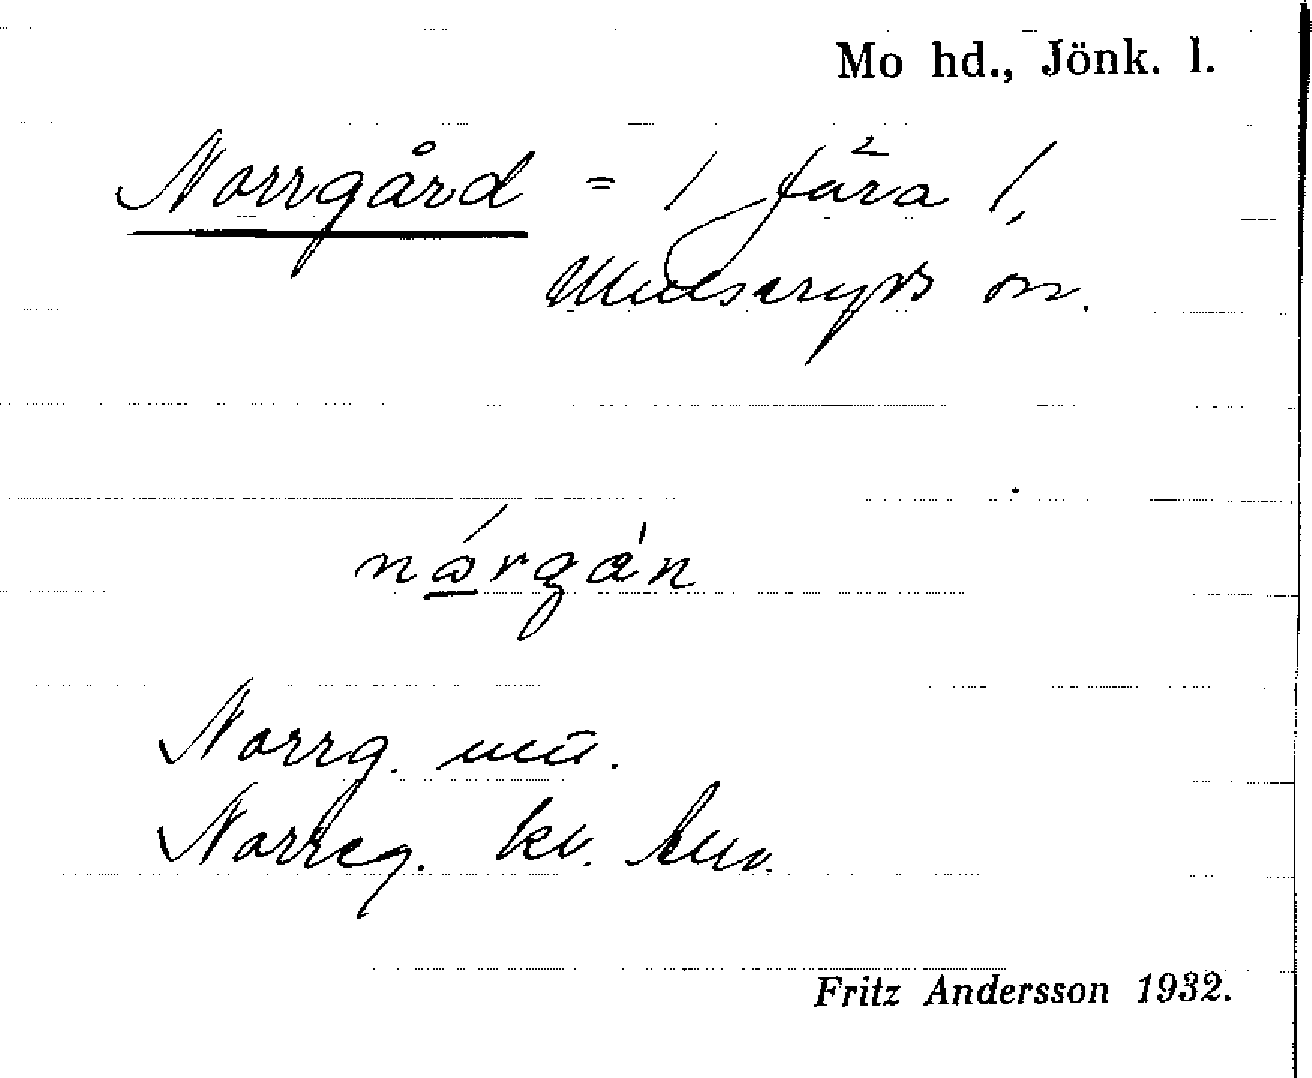 Mo hd., Jönk. l.
Norrgård = / Jära /,
Mulseryds sn.
nórgán
Norrg.
Norreg. kv.
Fritz Andersson 1932.